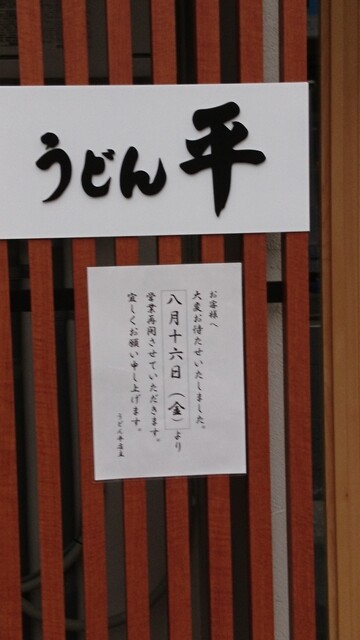 うどん 平
お客様へ
大変お待たせいたしました。
八月十六日（金）より
営業再開させていただきます。
宜しくお願い申し上げます。
うどん平店主